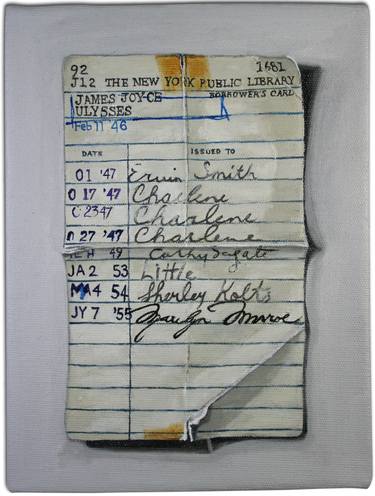 92 1681
J12 THE NEW YORK PUBLIC LIBRARY
BORROWER'S CARD
JAMES JOYCE
ULYSSES
Feb 11 '46
DATE ISSUED TO
01 '47 Ervin Smith
O 17 '47 Charlene
O 23 47 Charlene
O 27 '47 Charlene
49 Cathy
JA 2 53 Little
MA 4 54 Sherley Kolts
JY 7 '55 Marilyn Monroe